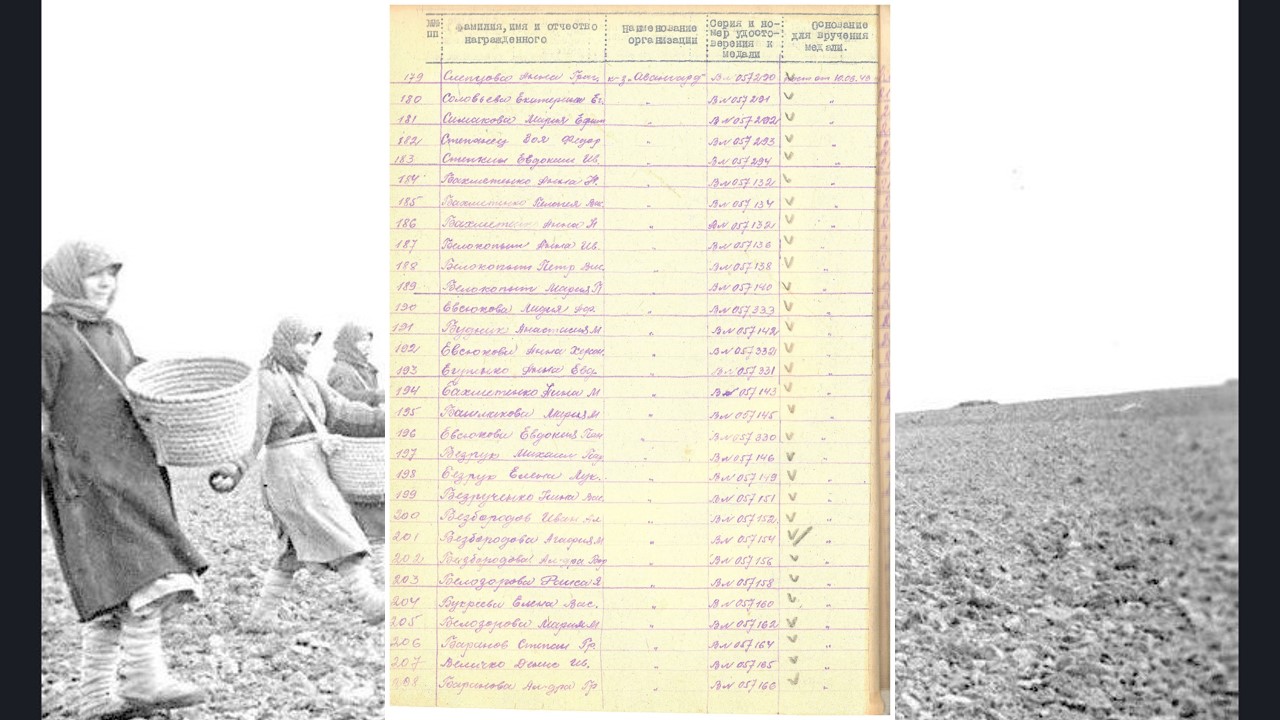 №№ пп Фамилия, имя и отчество награжденного Наименование организации Серия и номер удостоверения к медали Основание для вручения медали.
179 Слепцова Анна Григ. к-з „Авангард" Вл 057290 от 10.03.48
180 Соловьева Екатерина Ег. „ Вл 057291 „
181 Симакова Мария Ефим „ Вл 057292 „
182 Степанец Зоя Федор „ Вл 057293 „
183 Степкин Евдоким Ив. „ Вл 057294 „
184 Бахметенко Анна „ Вл 057132 „
185 Бахметенко Пелагея Вас. „ Вл 057134 „
186 Анна Н „ Вл 057132 „
187 Белокопыт Анна Ив. „ Вл 057136 „
188 Белокопыт Петр Вас. „ Вл 057138 „
189 Белокопыт Мария П „ Вл 057140 „
190 Евсюкова Лидия „ Вл 057333 „
191 Будник Анастасия М „ Вл 057142 „
192 Евсюкова Анна „ Вл 057332 „
193 Анна Евд. „ Вл 057331 „
194 Бахметенко Нина М „ Вл 057143 „
195 Мария М „ Вл 057145 „
196 Евсюкова Евдокия Пан „ Вл 057330 „
197 Бедрук Михаил „ Вл 057146 „
198 Бедрук Елена Лук. „ Вл 057149 „
199 Бедрученко Вас. „ Вл 057151 „
200 Безбородов Иван Ал „ Вл 057152 „
201 Безбородова Агафия М „ Вл 057154 „
202 Безбородова Ал-дра „ Вл 057156 „
203 Белозорова Раиса Я „ Вл 057158 „
204 Букреева Елена Вас. „ Вл 057160 „
205 Белозорова Мария М „ Вл 057162 „
206 Баринов Степан Гр. „ Вл 057164 „
207 Величко Денис Ив. „ Вл 057165 „
208 Баринова Ал-дра Гр „ Вл 057166 „